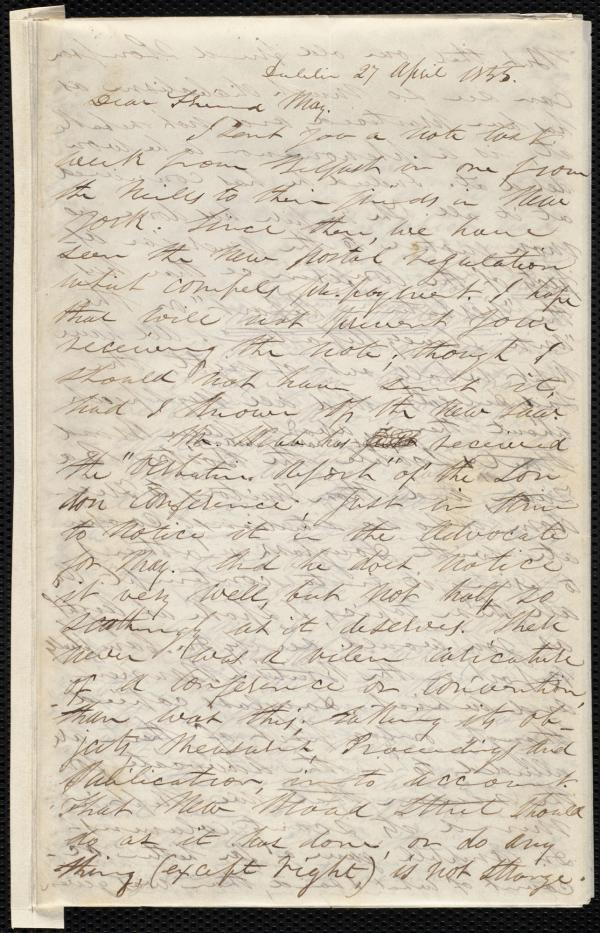 Dublin 27 April 1855.
Dear Friend May,
I sent you a note last
week from Belfast in one from
the Neills to their friends in New
York. Since then, we have
seen the new postal regulation
which compels pre-payment. I hope
that will not prevent your
receiving the note, though I
should not have sent it,
had I known of the new law
Mr. has received
the "Verbatim Report" of the Lon
don Conference, just in time
to notice it in the Advocate
for May. And he does notice
it very well, but not half so
scathingly as it deserves. There
never was a viler caricature
of a Conference or Convention,
than was this, taking its ob-
jects, measures, Proceedings and
Publication, into account.
That New Broad Street should
do as it has done, or do any
thing, (except right) is not strange.